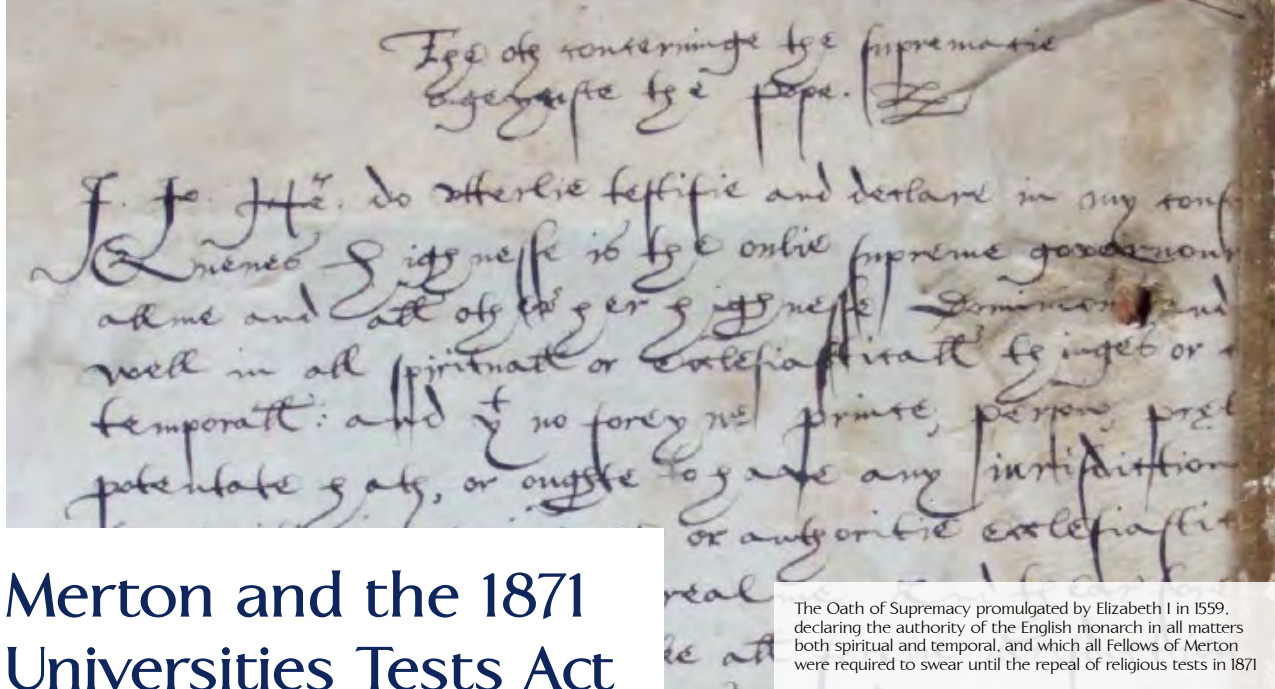 The oth concerninge the supremacie
agenyste the pope.
I. do vtterlie testifie and declare in my cons
Quenes Highnesse is the onlie supreme governour
alme and all other her highnesse Dominions and
well in all spirituall or ecclesiasticall thinges or
temporall: and yt no foreyne prince, person, prel
potentate hath, or oughte to have any iurisdiction
or authoritie ecclesiastic
real
all
Merton and the 1871
Universities Tests Act
The Oath of Supremacy promulgated by Elizabeth I in 1559,
declaring the authority of the English monarch in all matters
both spiritual and temporal, and which all Fellows of Merton
were required to swear until the repeal of religious tests in 1871